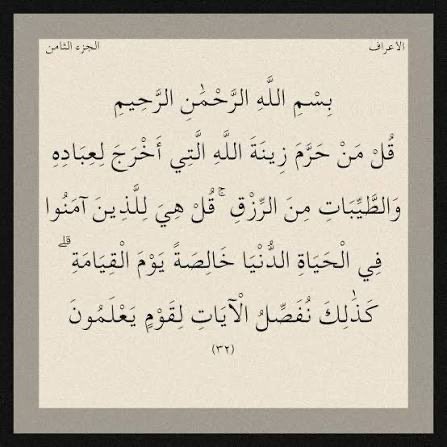 الأعراف
الجزء الثامن
بِسْمِ اللَّهِ الرَّحْمَٰنِ الرَّحِيمِ
قُلْ مَنْ حَرَّمَ زِينَةَ اللَّهِ الَّتِي أَخْرَجَ لِعِبَادِهِ
وَالطَّيِّبَاتِ مِنَ الرِّزْقِ ۚ قُلْ هِيَ لِلَّذِينَ آمَنُوا
فِي الْحَيَاةِ الدُّنْيَا خَالِصَةً يَوْمَ الْقِيَامَةِ ۗ
كَذَٰلِكَ نُفَصِّلُ الْآيَاتِ لِقَوْمٍ يَعْلَمُونَ
(٣٢)